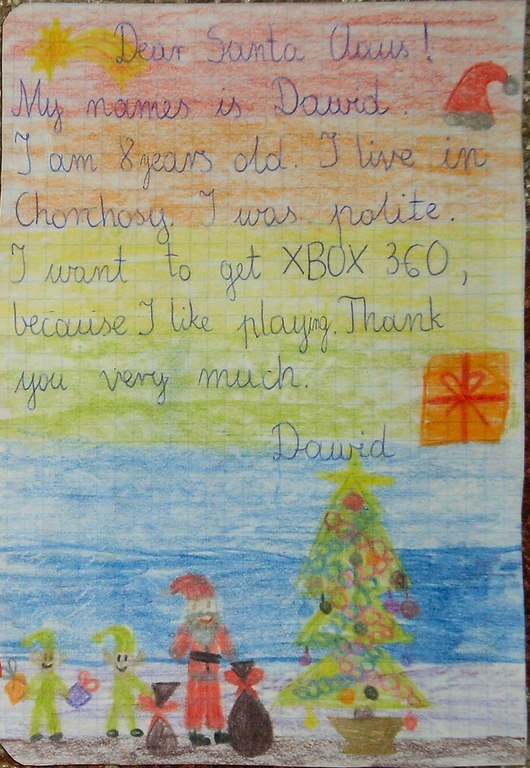 Dear Santa Claus!
My names is Dawid.
I am 8 years old. I live in
Chorchosy. I was polite.
I want to get XBOX 360,
because I like playing. Thank
you very much.
Dawid